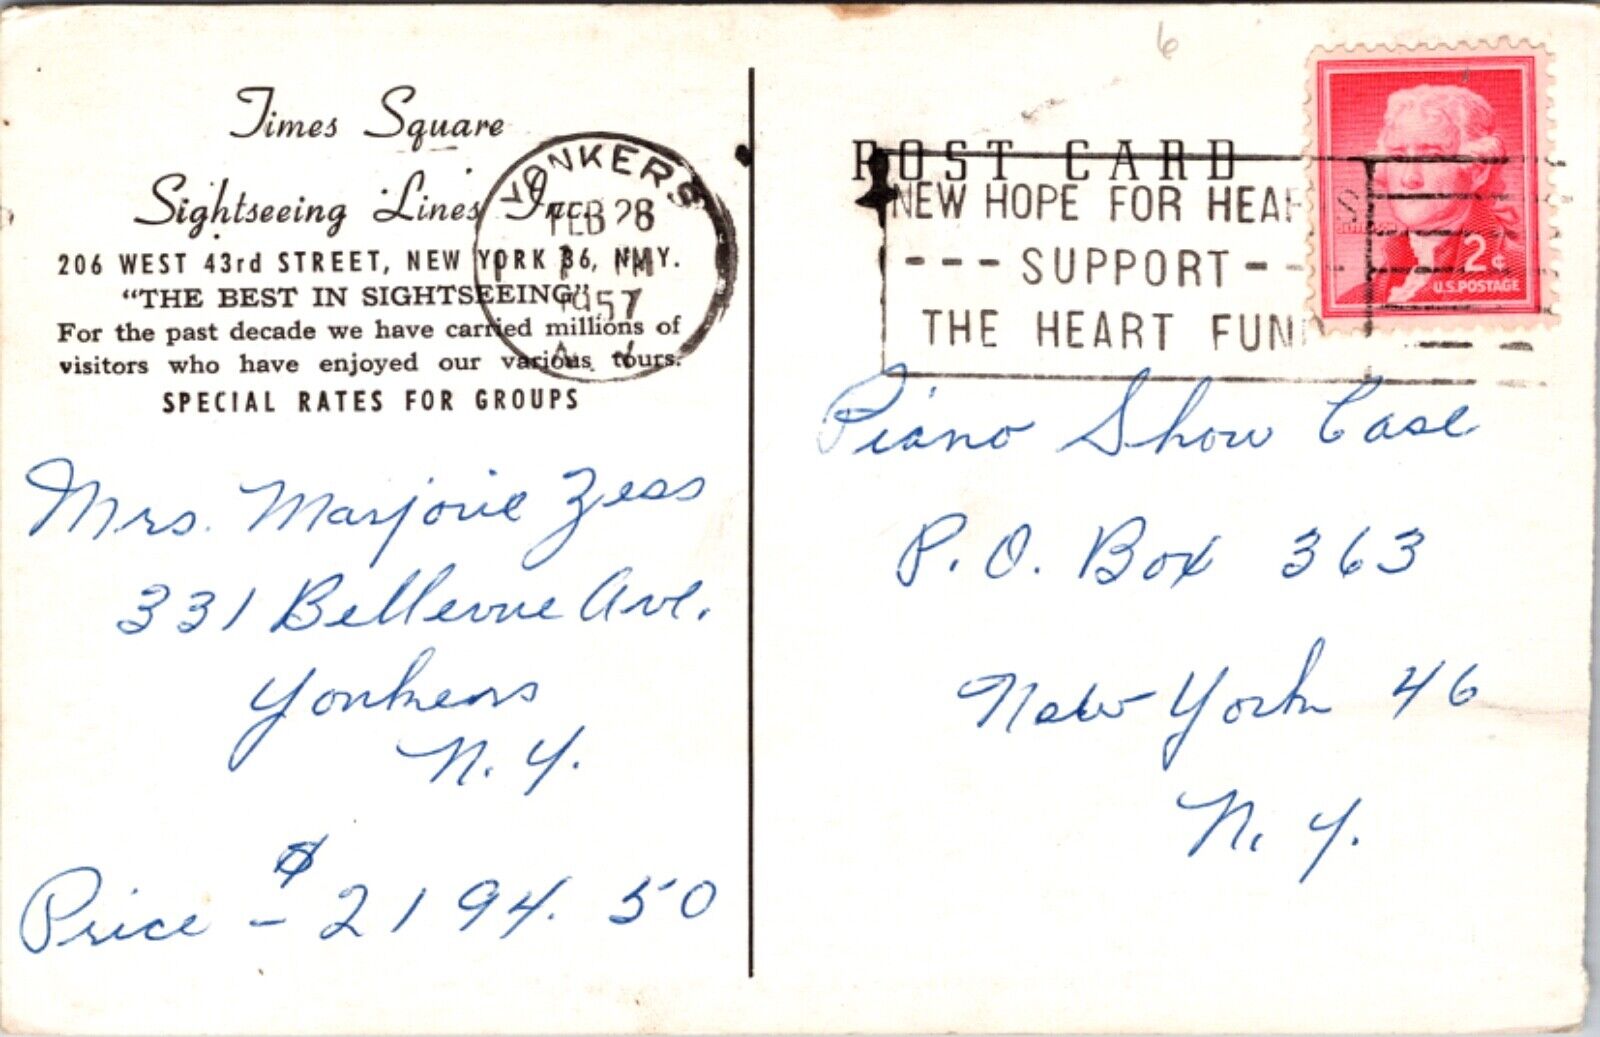 Times Square
Sightseeing Lines Inc.
206 WEST 43rd STREET, NEW YORK 36, N.Y.
"THE BEST IN SIGHTSEEING"
For the past decade we have carried millions of
visitors who have enjoyed our various tours.
SPECIAL RATES FOR GROUPS
YONKERS
FEB 28
PM
1957
Mrs. Marjorie Zess
331 Bellevue Ave.
Yonkers
N.Y.
Price - $2194.50
6
POST CARD
NEW HOPE FOR HEAR
--- SUPPORT ---
THE HEART FUND
2¢
U.S. POSTAGE
Piano Show Case
P.O. Box 363
New York 46
N.Y.